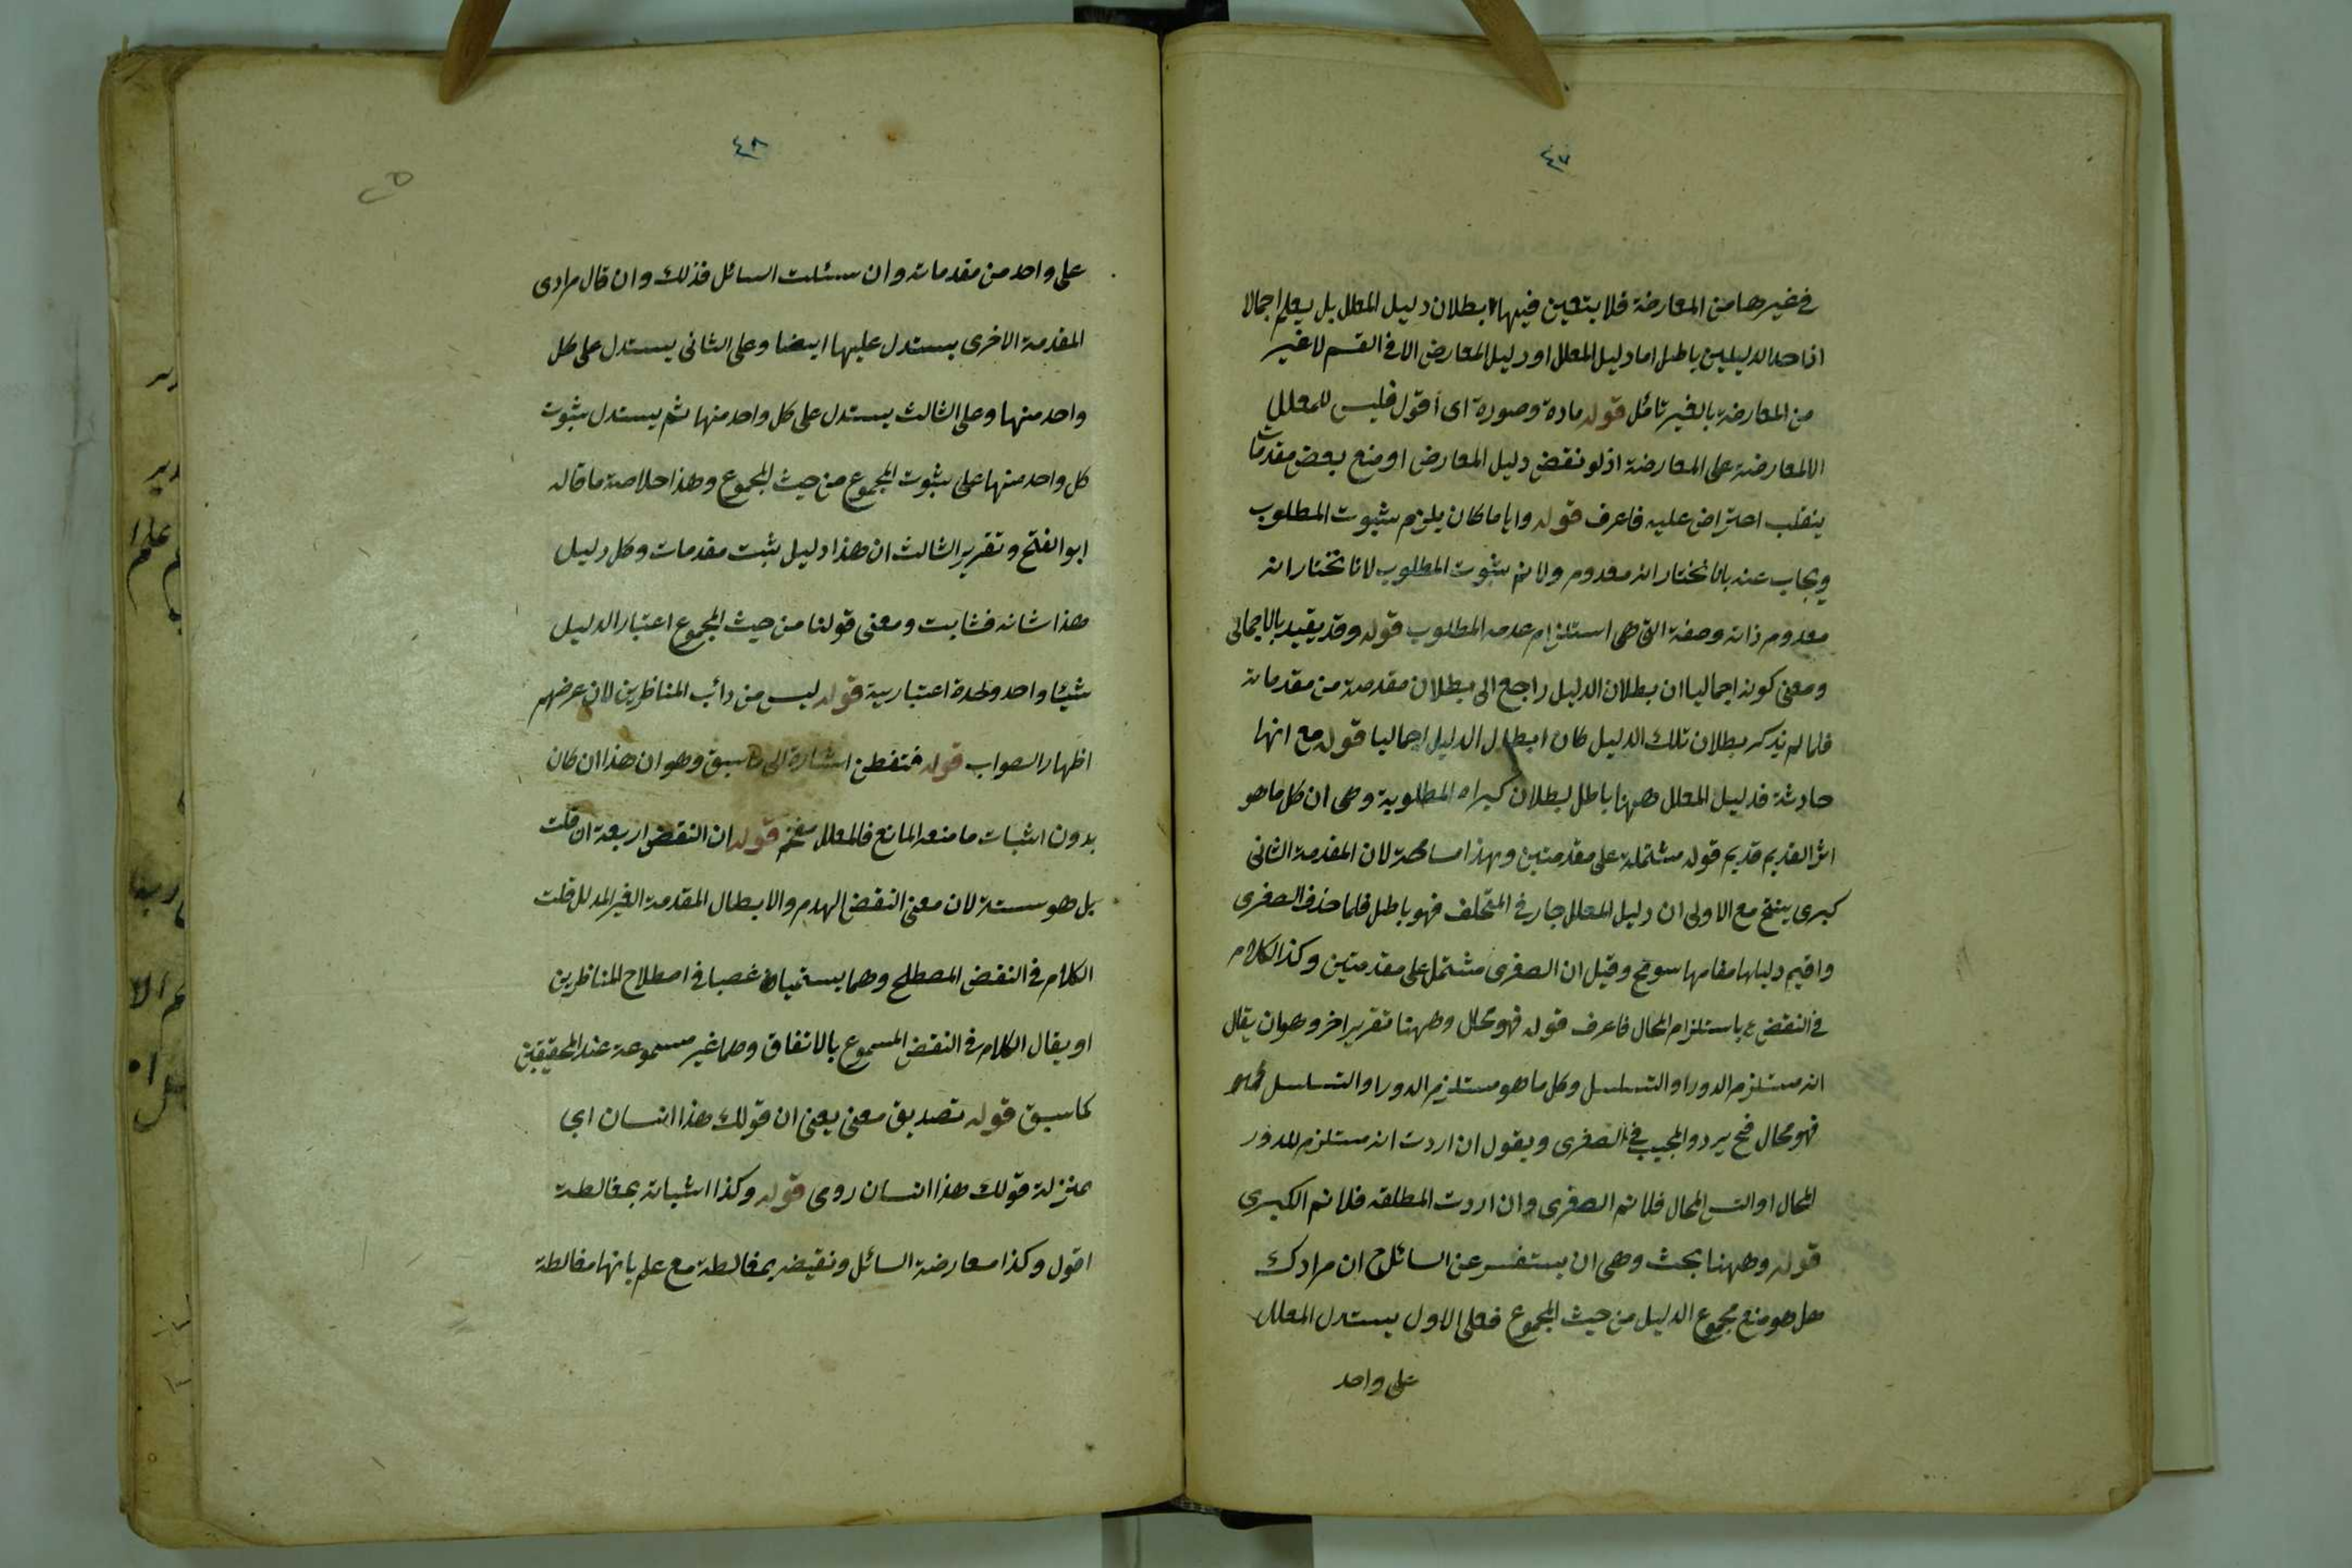 ٤٧
في غيرها من المعارضة فلا يتعين فيها بطلان دليل المعلل بل يعلم اجمالا
ان احد الدليلين باطل اما دليل المعلل او دليل المعارض الا في القسم لا غير
من المعارضة بالغير تأمل قوله مادة وصورة اى أقول فليس للمعلل
الا المعارضة على المعارضة اذ لو نقض دليل المعارض او منع بعض مقدمات
ينقلب اعتراض عليه فاعرف قوله وايا ما كان يلزم ثبوت المطلوب
ويجاب عنه بانا نختار انه معدوم ولا نم ثبوت المطلوب لانا نختار انه
معدوم ذاته وصفة التى هى استلزام عدم المطلوب قوله وقد يقيد بالاجمالى
ومعنى كونه اجماليا ان بطلان الدليل راجع الى بطلان مقدمة من مقدماته
فلما لم يذكر بطلان تلك الدليل كان ابطال الدليل اجماليا قوله مع انها
حادثة فدليل المعلل ههنا باطل لبطلان كبراه المطلوبة وهى ان كل ما هو
اثر القديم قديم قوله مشتملة على مقدمتين وهذا مسامحة لان المقدمة الثانى
كبرى ينتج مع الاولى ان دليل المعلل جار في المتخلف فهو باطل فلما حذف الصغرى
واقيم دليلها مقامها سومح وقيل ان الصغرى مشتمل على مقدمتين وكذا الكلام
في النقض باستلزام المحال فاعرف قوله فهو محلل وههنا تقرير اخر وهو ان يقال
انه مستلزم الدور او التسلسل وكل ما هو مستلزم الدور او التسلسل
فهو محال فح يردد المجيب في الصغرى ويقول ان اردت انه مستلزم للدور
المحال او التس المحال فلا نم الصغرى وان اردت المطلقه فلا نم الكبرى
قوله وههنا بحث وهى ان يستفسر عن السائل ح ان مرادك
هل هو منع مجموع الدليل من حيث المجموع فعلى الاول يستدل المعلل
على واحد
٤٨
على واحد من مقدماته وان سئلت السائل فذلك وان قال مرادى
المقدمة الاخرى يستدل عليها ايضا وعلى الثانى يستدل على كل
واحد منها وعلى الثالث يستدل على كل واحد منها ثم يستدل بثبوت
كل واحد منها على ثبوت المجموع من حيث المجموع وهذا خلاصة ما قاله
ابو الفتح وتقرير الثالث ان هذا دليل يثبت مقدمات وكل دليل
هذا شانه فثابت ومعنى قولنا من حيث المجموع اعتبار الدليل
شيئا واحد وحدة اعتبارية قوله ليس من دأب المناظرين لان غرضهم
اظهار الصواب قوله فتفطن اشارة الى ما سبق وهو ان هذا ان كان
بدون اثبات ما منعه المانع فالمعلل مفحم قوله ان النقض اربعة ان قلت
بل هو ستة لان معنى النقض الهدم والابطال المقدمة الغير المدلل قلت
الكلام في النقض المصطلح وهما يسميان غصبا في اصطلاح المناظرين
او يقال الكلام في النقض المسموع بالاتفاق وهما غير مسموعة عند المحققين
كما سبق قوله تصديق معنى يعنى ان قولك هذا انسان اى
بمنزلة قولك هذا انسان رومى قوله وكذا اثباته بمغالطة
اقول وكذا معارضة السائل ونقيضه بمغالطة مع علم بانها مغالطة